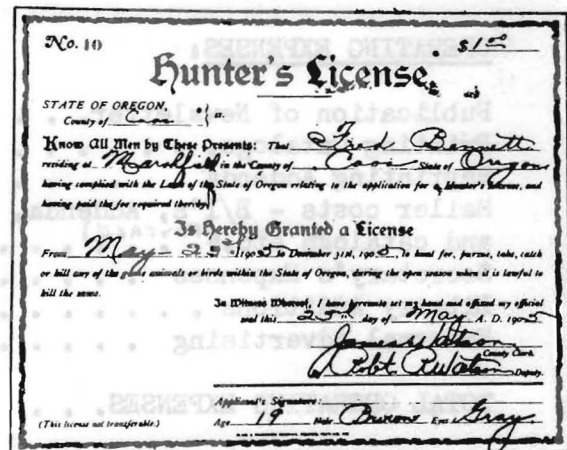 No. 10 $1.00
Hunter's License.
STATE OF OREGON,
County of Coos ss.
Know All Men by These Presents: That Fred Bennett
residing at Marshfield in the County of Coos State of Oregon
having complied with the Laws of the State of Oregon relating to the application for a Hunter's License, and
having paid the fee required thereby,
Is Hereby Granted a License
From May 25th 1905 to December 31st, 1905, to hunt for, pursue, take, catch
or kill any of the game animals or birds within the State of Oregon, during the open season when it is lawful to
kill the same.
In Witness Whereof, I have hereunto set my hand and affixed my official
seal this 25th day of May A. D. 1905
James Watson
County Clerk.
Robt. R. Watson Deputy.
Applicant's Signature:
(This license not transferable.) Age 19 Hair Brown Eyes Gray
OPERATING EXPENSES:
Publication of Newsletter
Mailer costs -
and
Advertising
TOTAL OPERATING EXPENSES